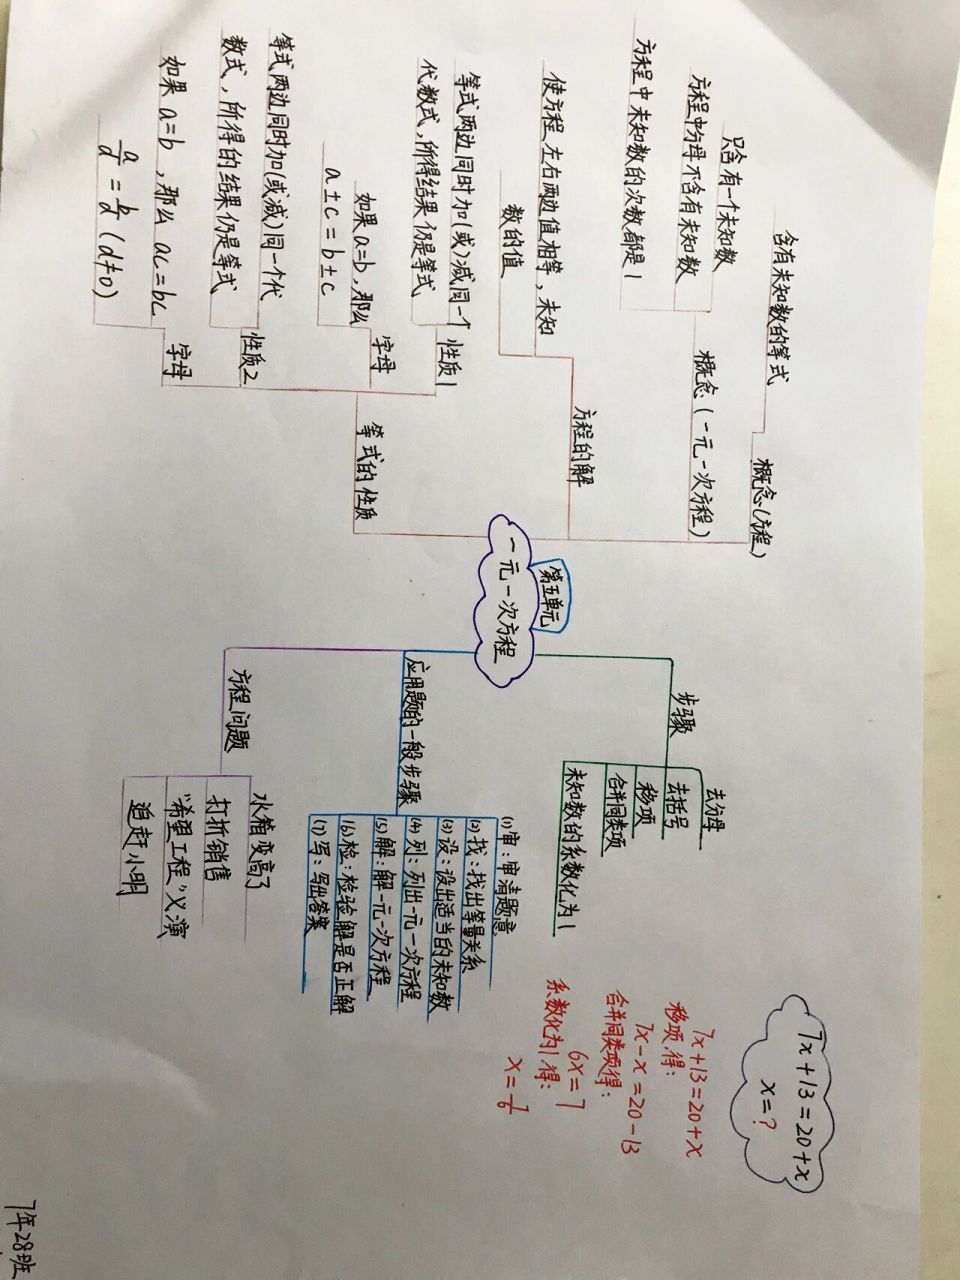 第五单元
一元一次方程
概念(方程)
含有未知数的等式
概念(一元一次方程)
只含有一个未知数
方程中分母不含有未知数
方程中未知数的次数都是1
方程的解
使方程左右两边值相等,未知
数的值
等式的性质
性质1
等式两边同时加(或)减同一个
代数式,所得结果仍是等式
字母
如果a=b,那么
a±c=b±c
性质2
等式两边同时加(或减)同一个代
数式,所得的结果仍是等式
字母
如果a=b,那么ac=bc
a/d=b/d(d≠0)
步骤
去分母
去括号
移项
合并同类项
未知数的系数化为1
应用题的一般步骤
(1)审:审清题意
(2)找:找出等量关系
(3)设:设出适当的未知数
(4)列:列出一元一次方程
(5)解:解一元一次方程
(6)检:检验解是否正解
(7)写:写出答案
方程问题
水箱变高了
打折销售
"希望工程"义演
追赶小明
7x+13=20+x
x=?
7x+13=20+x
移项,得:
7x-x=20-13
合并同类项得:
6x=7
系数化为1,得:
x=7/6
7年28班